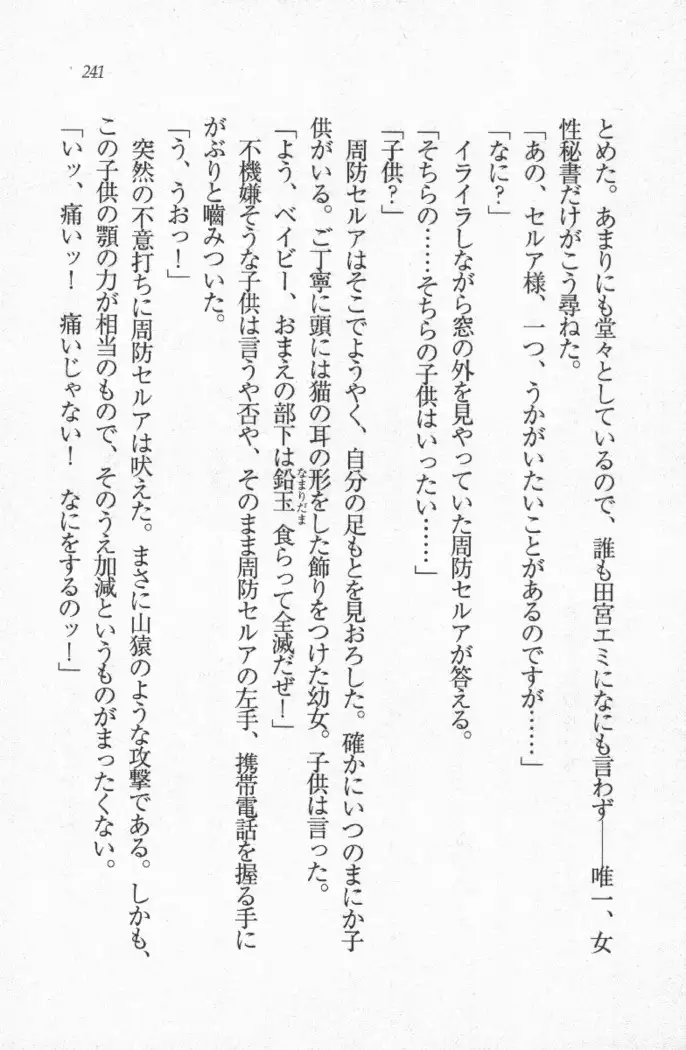 241
とめた。あまりにも堂々としているので、誰も田宮エミになにも言わず――唯一、女
性秘書だけがこう尋ねた。
「あの、セルア様、一つ、うかがいたいことがあるのですが……」
「なに？」
イライラしながら窓の外を見やっていた周防セルアが答える。
「そちらの……そちらの子供はいったい……」
「子供？」
周防セルアはそこでようやく、自分の足もとを見おろした。確かにいつのまにか子
供がいる。ご丁寧に頭には猫の耳の形をした飾りをつけた幼女。子供は言った。
「よう、ベイビー、おまえの部下は鉛玉食らって全滅だぜ！」
なまりだま
不機嫌そうな子供は言うや否や、そのまま周防セルアの左手、携帯電話を握る手に
がぶりと嚙みついた。
「う、うおっ！」
突然の不意打ちに周防セルアは吠えた。まさに山猿のような攻撃である。しかも、
この子供の顎の力が相当のもので、そのうえ加減というものがまったくない。
「いッ、痛いッ！　痛いじゃない！　なにをするのッ！」